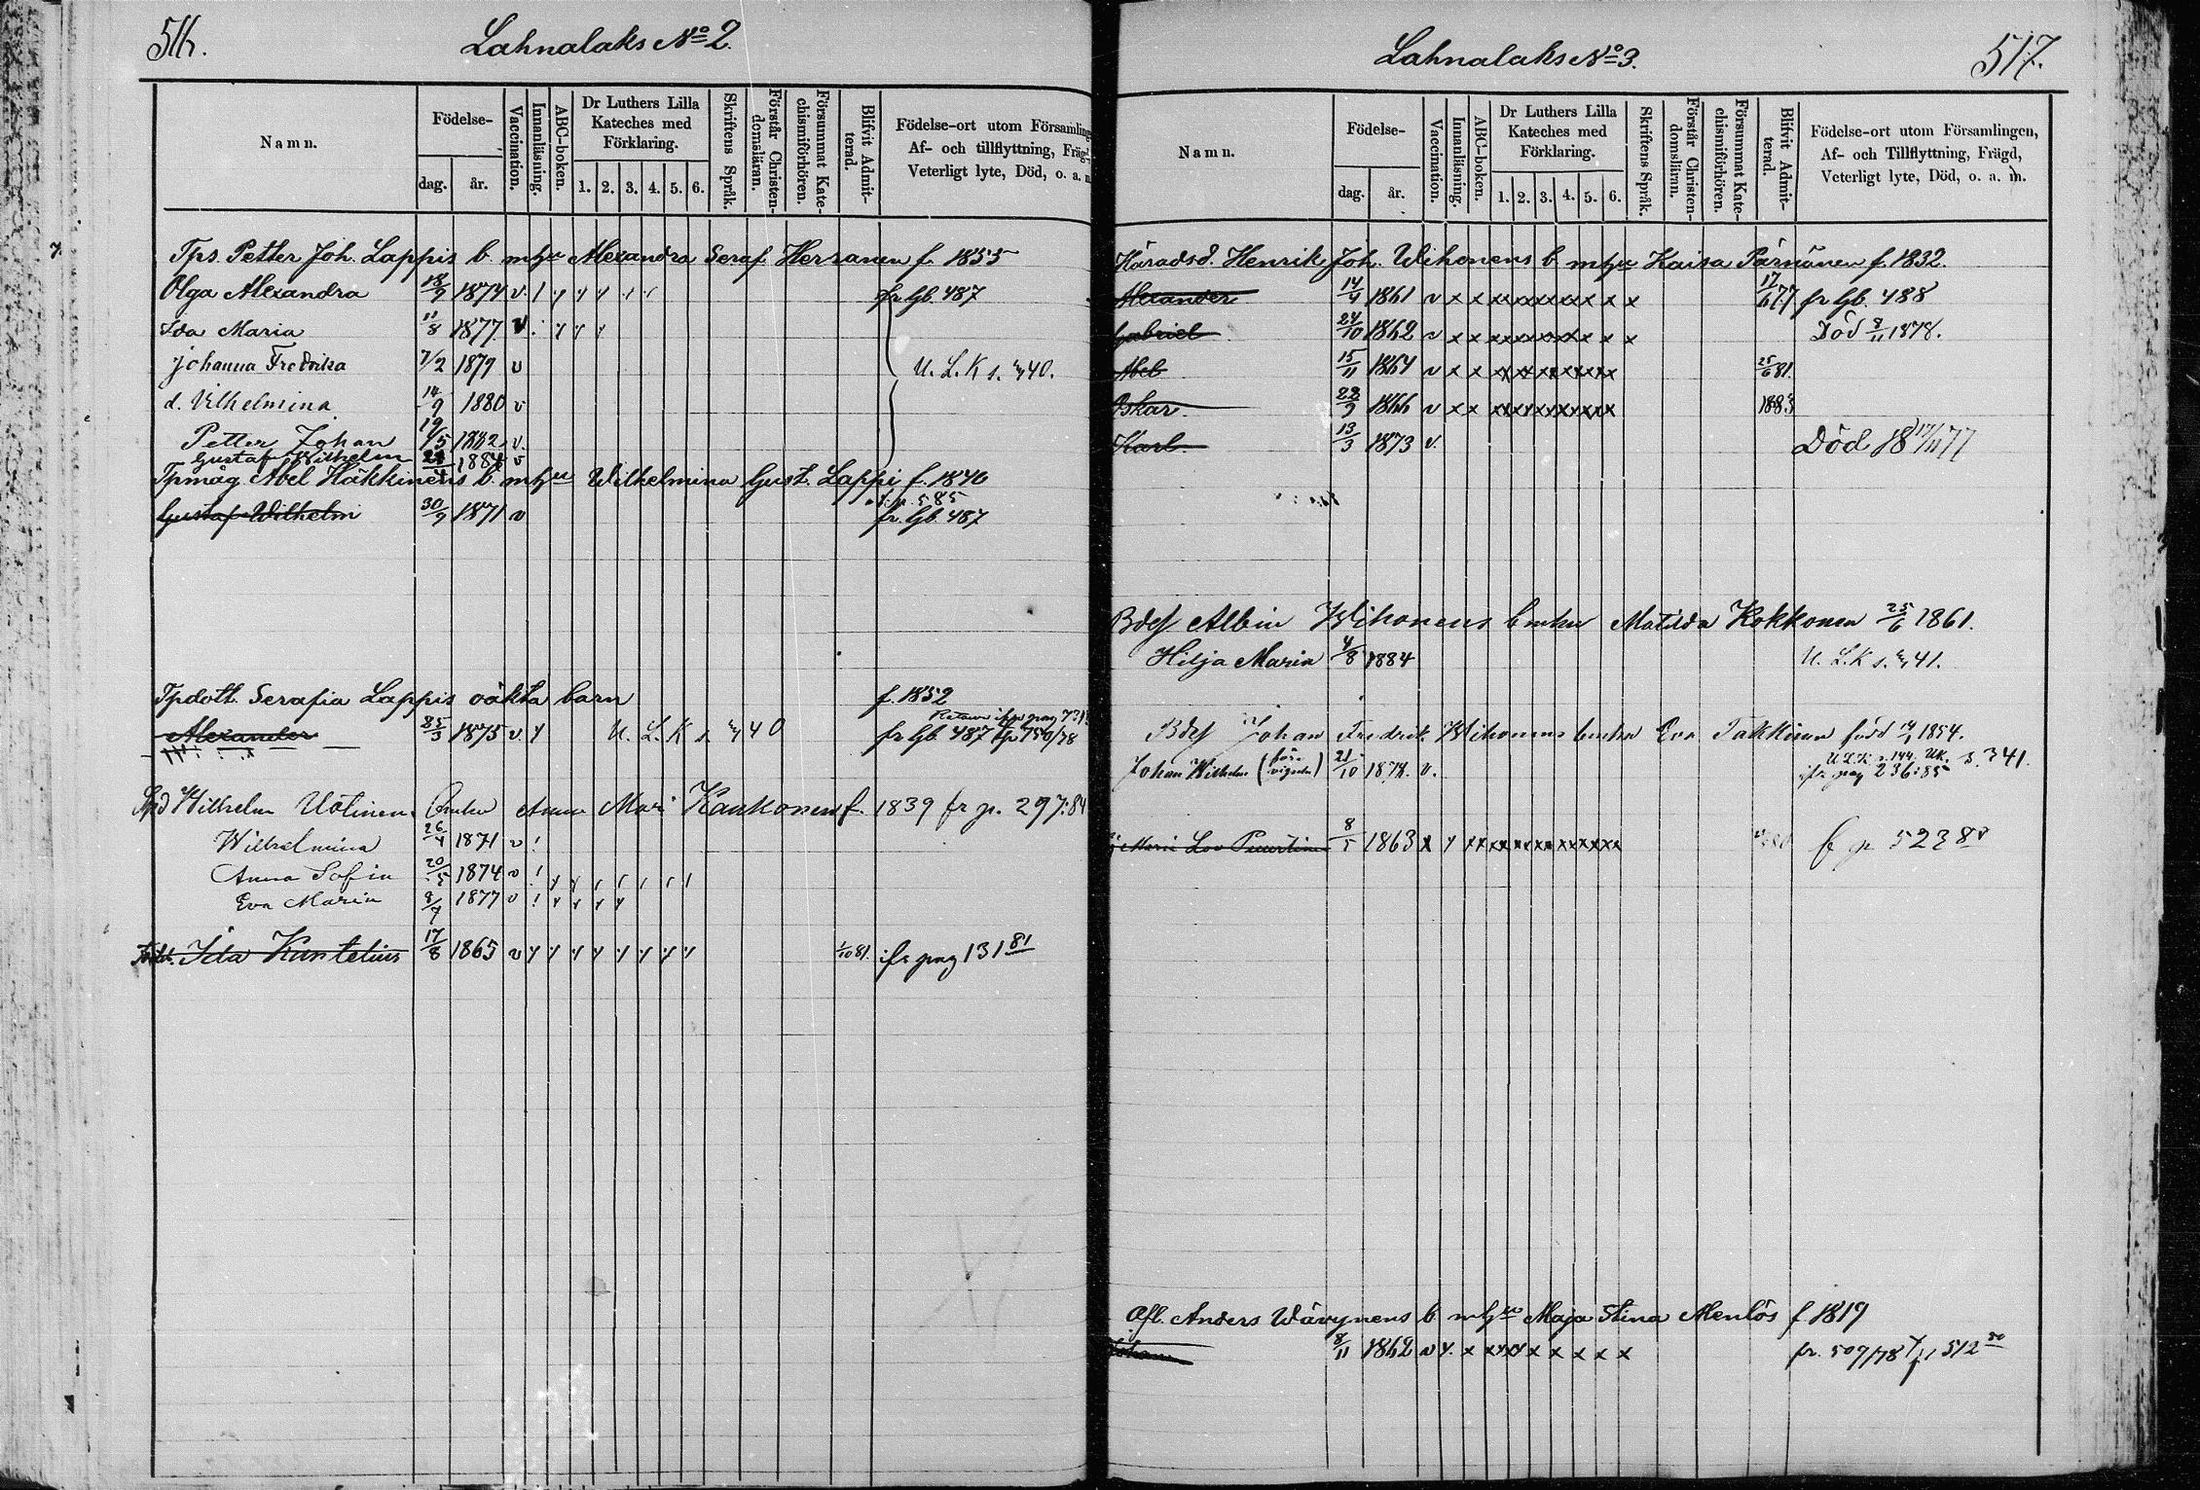 516.
Lahnalaks No 2.
Namn.
Födelse-
dag.
år.
Vaccination.
Innanläsning.
ABC-boken.
Dr Luthers Lilla
Kateches med
Förklaring.
1. 2. 3. 4. 5. 6.
Skriftens Språk.
Förstår Christen-
domsläran.
Försummat Kate-
chismiförhören.
Blifvit Admit-
terad.
Födelse-ort utom Församling
Af- och tillflyttning, Frägd,
Veterligt lyte, Död, o. a. m
Tps. Petter Joh. Lappis b. m hu Alexandra Seraf. Herranen f. 1855
Olga Alexandra 18/9 1874 v. fr. Gb. 487
Ida Maria 11/8 1877 v
Johanna Fredrika 7/2 1879 v U. L. K s. 40.
d. Vilhelmina 14/9 1880 v
Petter Johan 19/5 1882 v.
Gustaf Wilhelm 1884 v
Tpmåg Abel Häkkinens b. m hu Wilhelmina Gust. Lappi f. 1840
p. 585
Gustaf Wilhelm 30/9 1871 v fr. Gb. 487
Tpdott. Serafia Lappis oäkta barn f. 1852
Alexander 25/3 1875 v. U. L. K s. 40 fr Gb. 487 tp 750/78
Wilhelm Uotinen Anna Mari Kaukonen f. 1839 fr p. 297:84
Wilhelmina 26/4 1871 v
Anna Sofia 20/5 1874 v
Eva Maria 8/7 1877 v
Ida Kuntelius 17/8 1865 v 1/10 81. pag 131 81
Lahnalaks No 3.
517.
Namn.
Födelse-
dag.
år.
Vaccination.
Innanläsning.
ABC-boken.
Dr Luthers Lilla
Kateches med
Förklaring.
1. 2. 3. 4. 5. 6.
Skriftens Språk.
Förstår Christen-
domsläran.
Försummat Kate-
chismiförhören.
Blifvit Admit-
terad.
Födelse-ort utom Församlingen,
Af- och Tillflyttning, Frägd,
Veterligt lyte, Död, o. a. m.
Häradsd. Henrik Joh. Wihonens b m hu Kaisa Pärnänen f. 1832.
Alexander 14/4 1861 v x x x x x x x x x x 17/6 77 fr Gb. 488
Gabriel 24/10 1862 v x x x x x x x x x x Död 8/11 1878.
Abel 15/11 1864 v x x x x x x x x 25/6 81.
Oskar 22/9 1866 v x x x x x x x x 1883
Karl 13/3 1873 v. Död 18 17/11 77
Bdes Albin Wihonens b m hu Matilda Kokkonen 25/6 1861.
Hilja Maria 4/8 1884 U. L. K s. 41.
Bdes Johan Fredrik Wihonens b m hu Eva Takkinen född 14/1 1854.
U. L. K s. 144. UK. s. 341.
Johan Wilhelm (före vigseln) 21/10 1878. v. pag 236:85
Maria Lov 8/5 1863 x
Afl. Anders Wäwynens b m hu Maja Stina Menlös f 1819
Johan 8/11 1862 v x x x x x x x x fr. 509/78 512 80